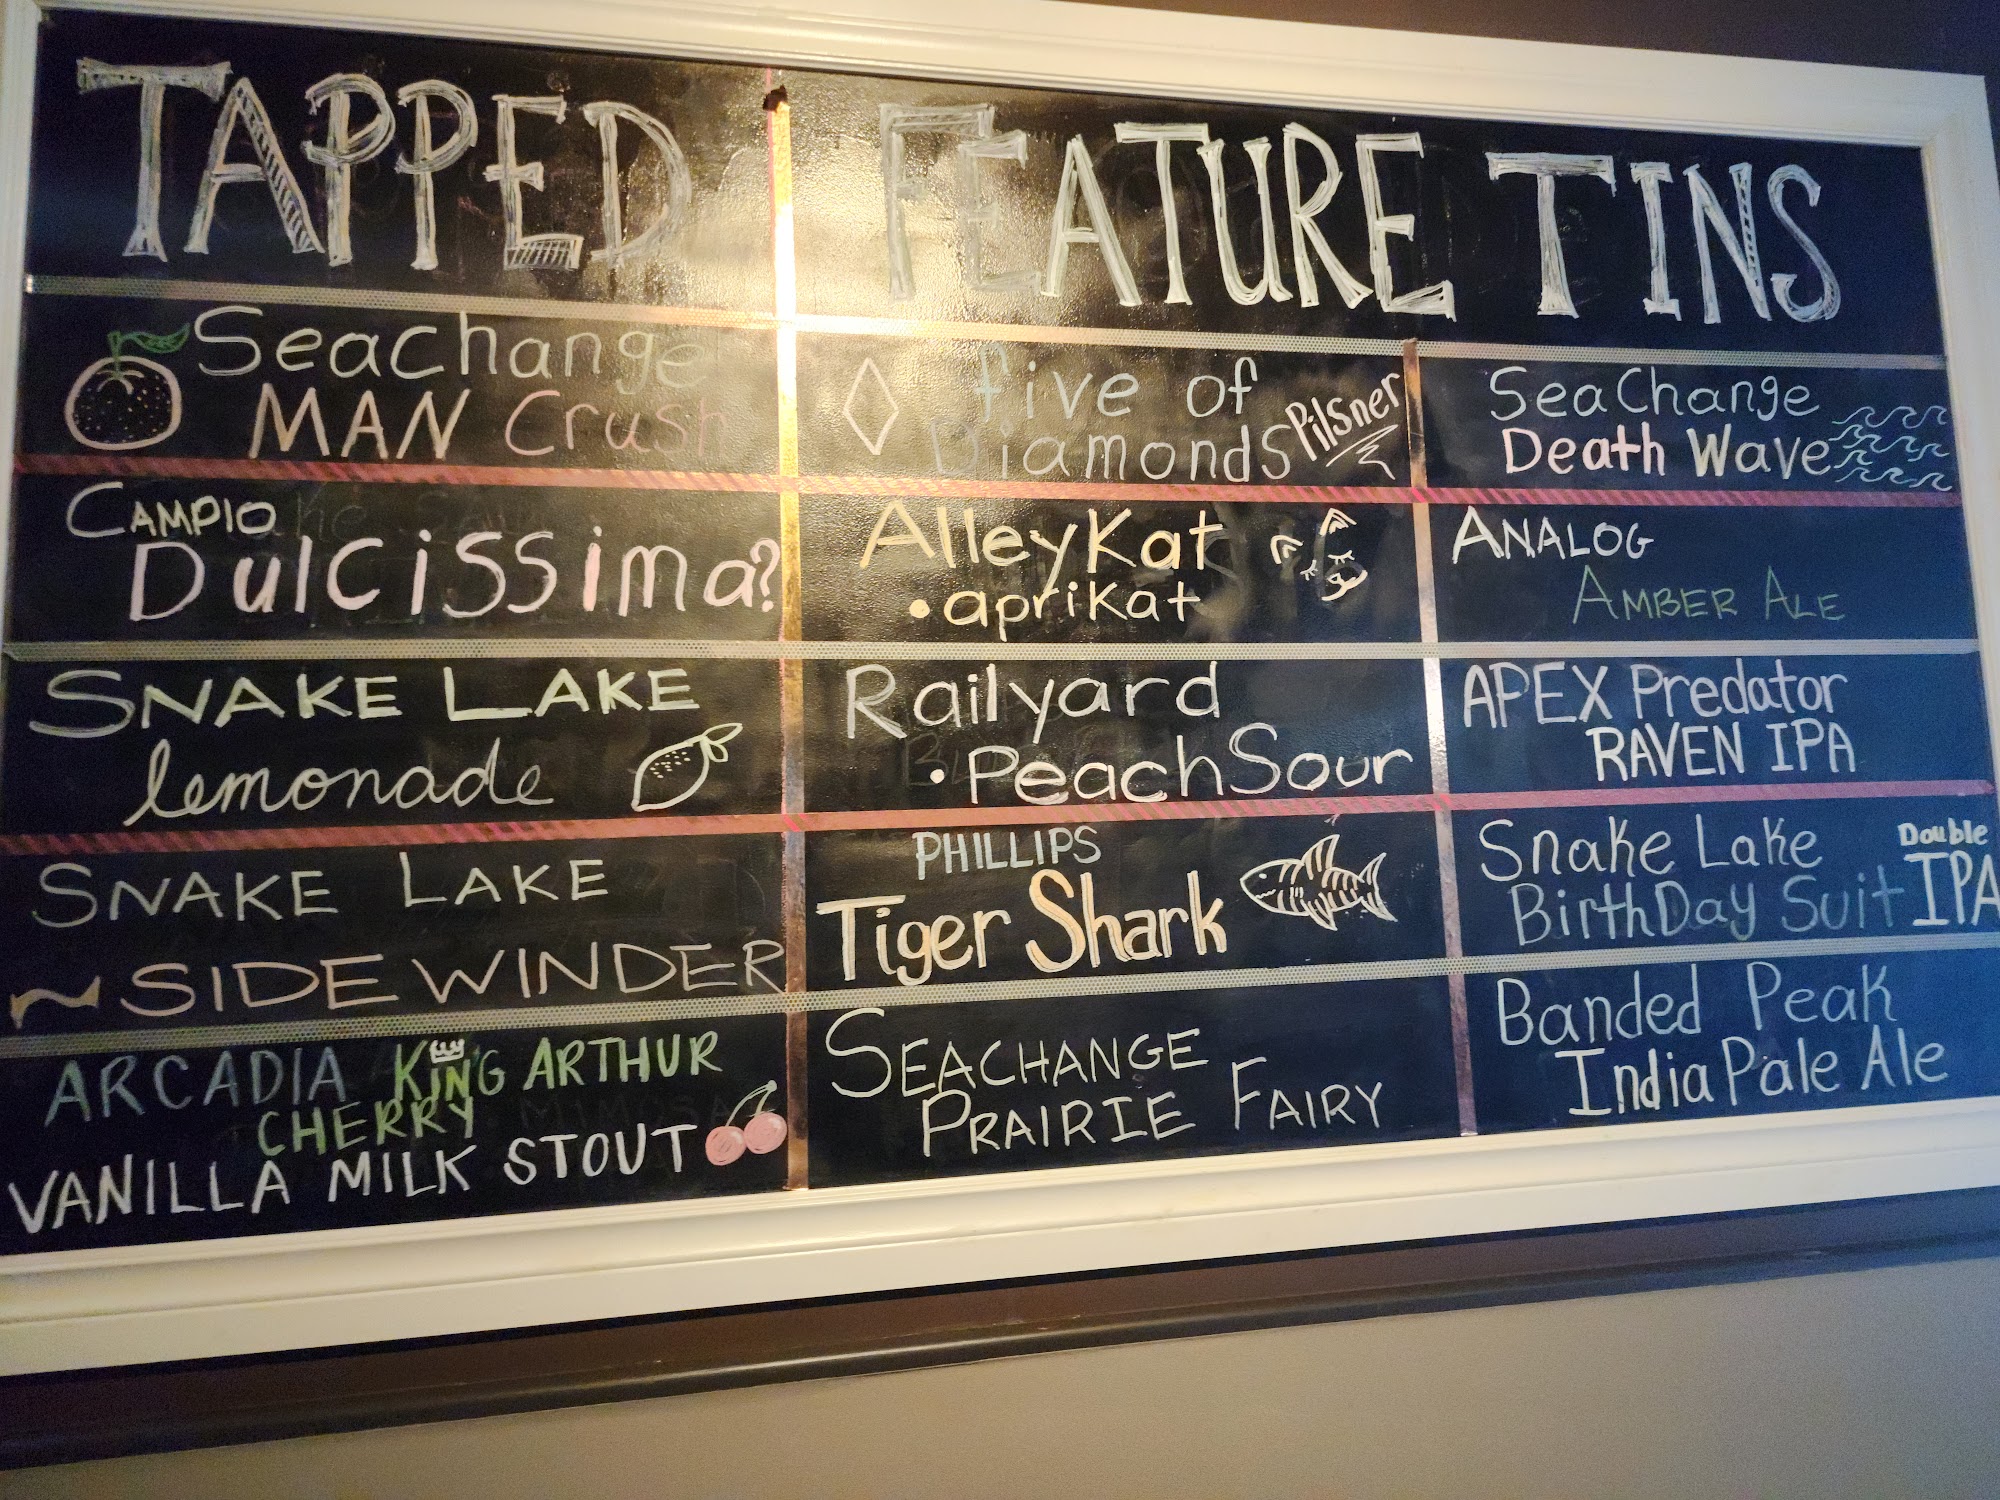 TAPPED
FEATURE TINS
SeaChange
MAN Crush
CAMPIO
Dulcissima?
SNAKE LAKE
lemonade
SNAKE LAKE
~SIDEWINDER
ARCADIA KING ARTHUR
CHERRY
VANILLA MILK STOUT
five of
Diamonds Pilsner
AlleyKat
•aprikat
Railyard
•PeachSour
PHILLIPS
Tiger Shark
SEACHANGE
PRAIRIE FAIRY
SeaChange
Death Wave
ANALOG
AMBER ALE
APEX Predator
RAVEN IPA
Snake Lake Double
BirthDay Suit IPA
Banded Peak
India Pale Ale